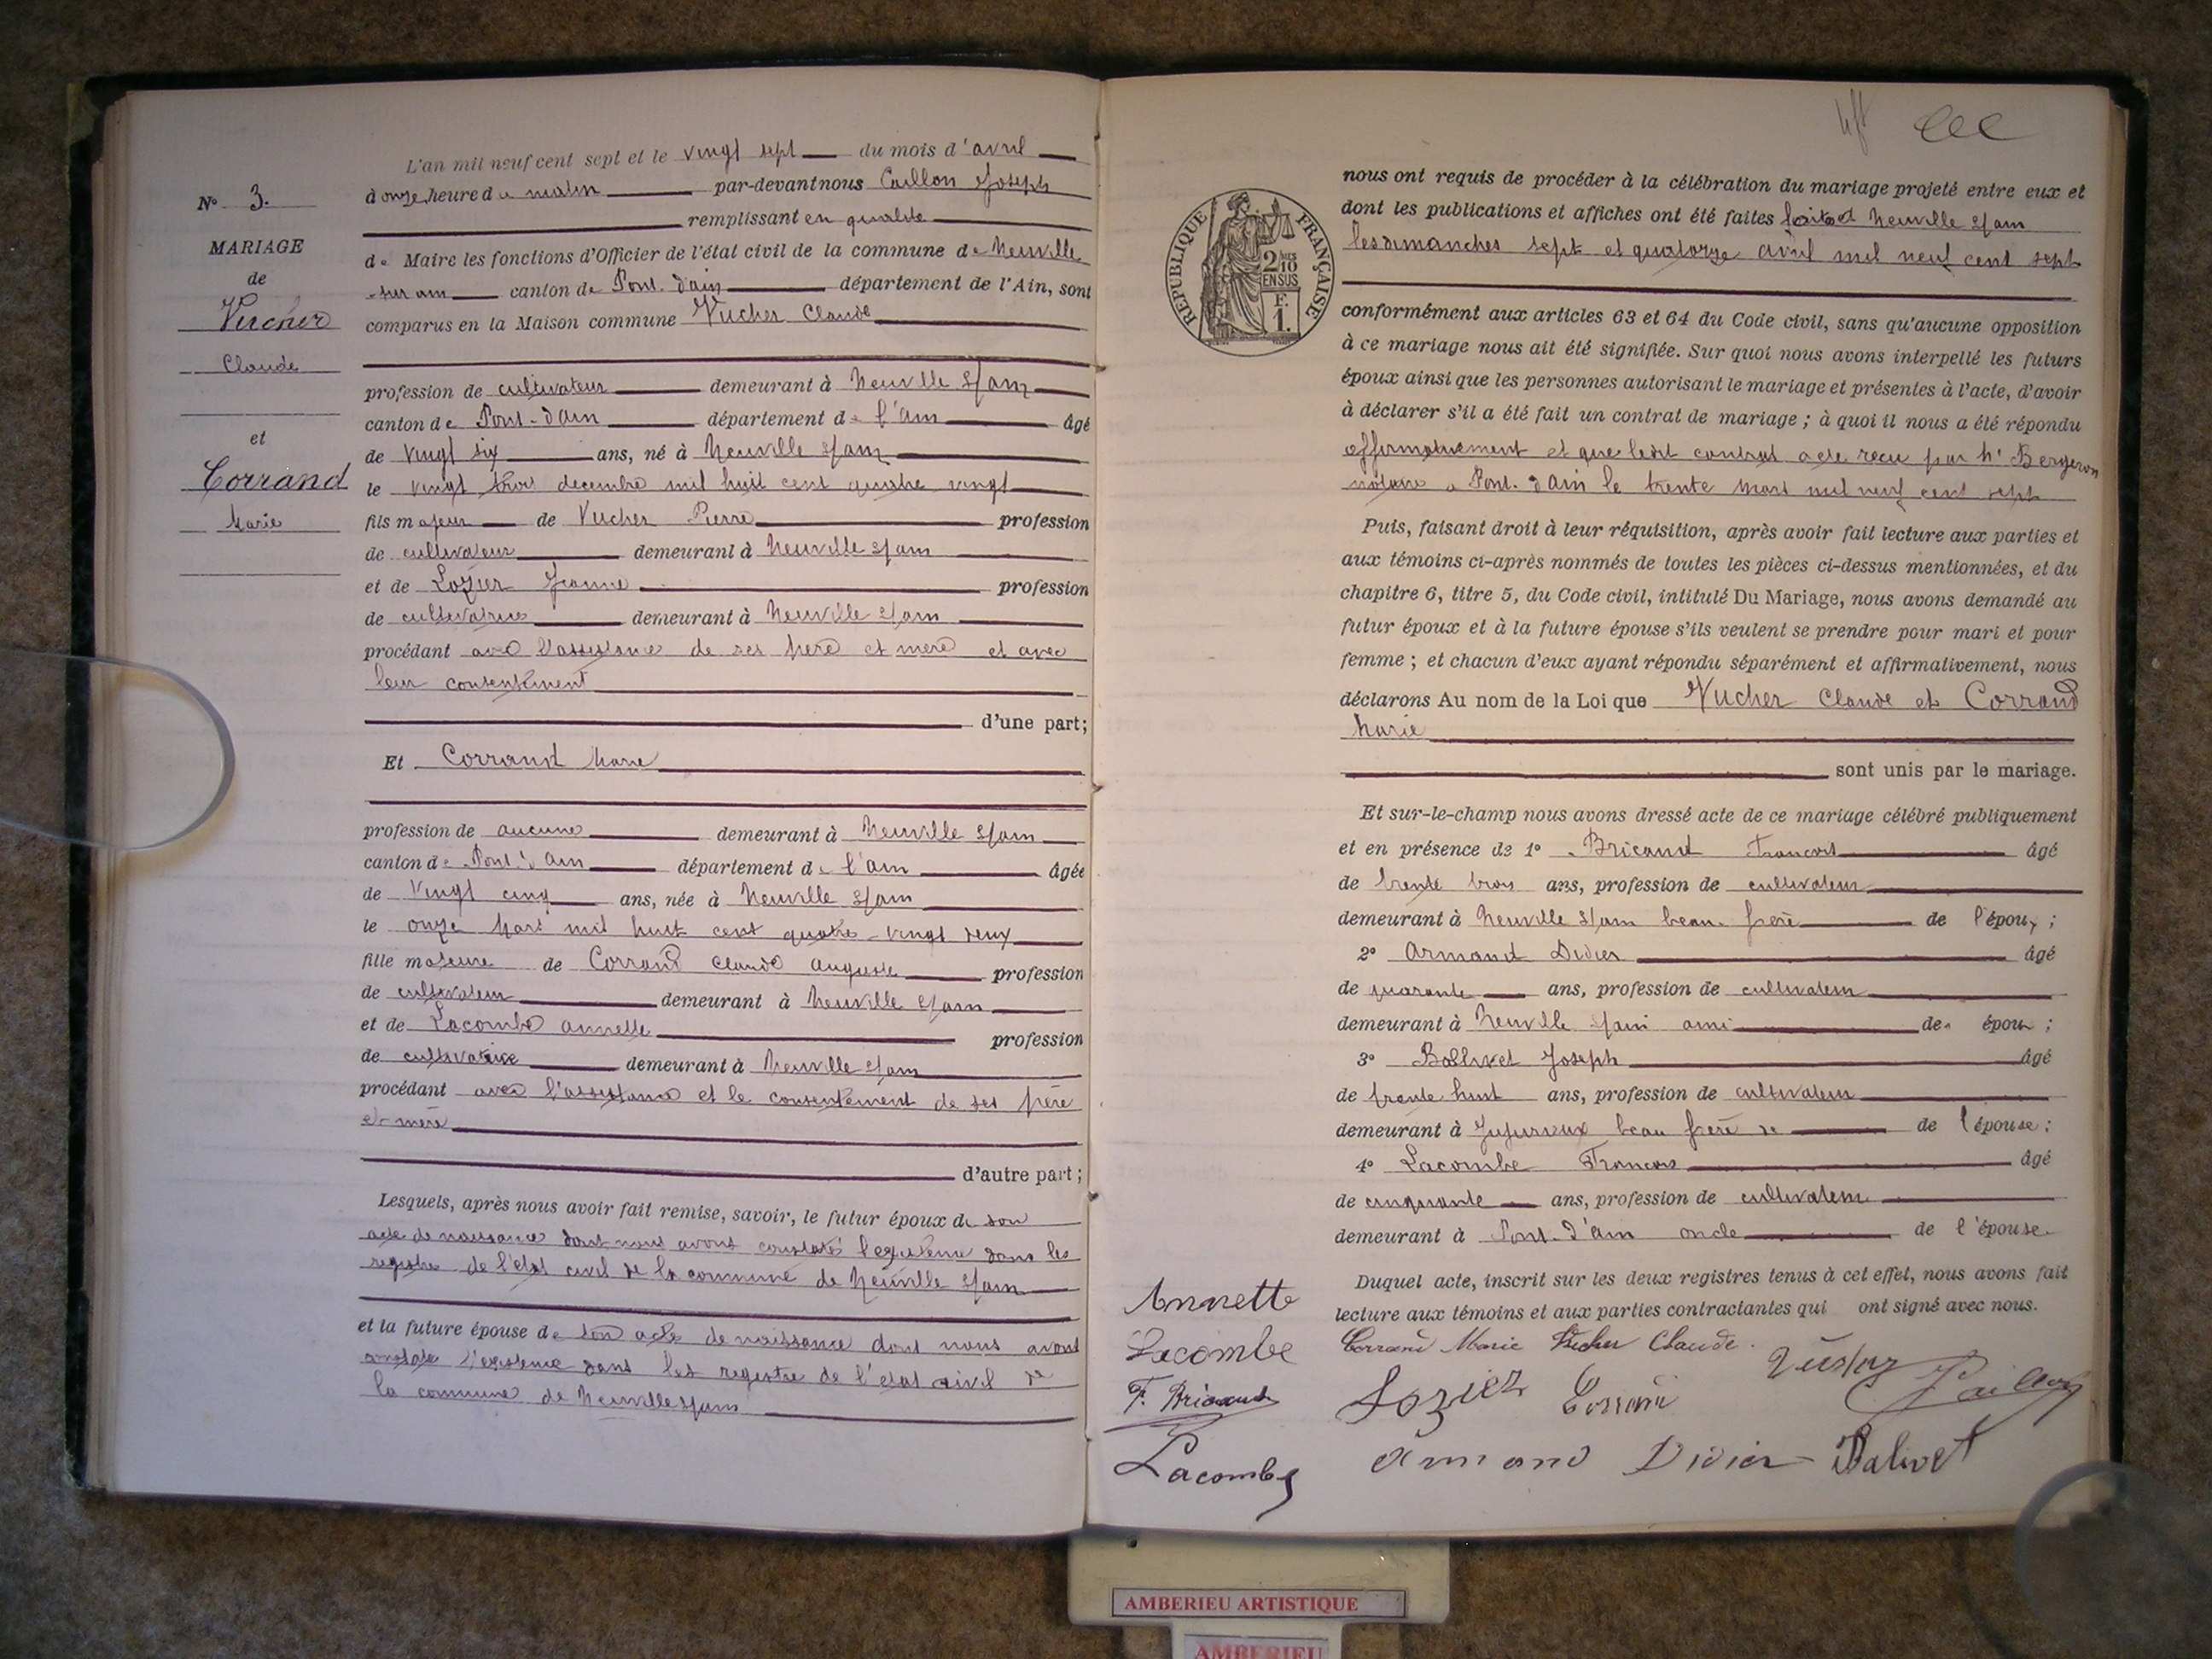 L'an mil neuf cent sept et le vingt sept du mois d'avril
à onze heure du matin par-devant nous Caillon Joseph
remplissant en qualité
de Maire les fonctions d'Officier de l'état civil de la commune de Neuville
sur ain canton de Pont. d'ain département de l'Ain, sont
comparus en la Maison commune Vucher Claude
profession de cultivateur demeurant à Neuville s/ain
canton de Pont-d'ain département de l'ain âgé
de vingt six ans, né à Neuville s/ain
le vingt trois decembre mil huit cent quatre vingt
fils majeur de Vucher Pierre profession
de cultivateur demeurant à Neuville s/ain
et de Lozier Jeanne profession
de cultivatrice demeurant à Neuville s/ain
procédant avec l'assistance de ses père et mère et avec
leur consentement
d'une part;
Et Corrand Marie
profession de aucune demeurant à Neuville s/ain
canton de Pont d'ain département de l'ain âgée
de vingt cinq ans, née à Neuville s/ain
le onze Mars mil huit cent quatre-vingt deux
fille majeure de Corrand Claude auguste profession
de cultivateur demeurant à Neuville s/ain
et de Lacombe annette profession
de cultivatrice demeurant à Neuville s/ain
procédant avec l'assistance et le consentement de ses père
et mère
d'autre part;
Lesquels, après nous avoir fait remise, savoir, le futur époux de son
acte de naissance dont nous avons constaté l'existence dans les
registre de l'état civil de la commune de Neuville s/ain
et la future épouse de son acte de naissance dont nous avons
constaté l'existence dans les registre de l'état civil de
la commune de Neuville s/ain
N° 3.
MARIAGE
de
Vucher
Claude
et
Corrand
Marie
RÉPUBLIQUE FRANÇAISE
2/10
EN SUS
F.
1.
nous ont requis de procéder à la célébration du mariage projeté entre eux et
dont les publications et affiches ont été faites Neuville s/ain
les dimanches sept et quatorze avril mil neuf cent sept
conformément aux articles 63 et 64 du Code civil, sans qu'aucune opposition
à ce mariage nous ait été signifiée. Sur quoi nous avons interpellé les futurs
époux ainsi que les personnes autorisant le mariage et présentes à l'acte, d'avoir
à déclarer s'il a été fait un contrat de mariage ; à quoi il nous a été répondu
affirmativement et que ledit contrat a été recu par Mᵉ Bergeron
notaire a Pont. d'ain le trente Mars mil neuf cent sept
Puis, faisant droit à leur réquisition, après avoir fait lecture aux parties et
aux témoins ci-après nommés de toutes les pièces ci-dessus mentionnées, et du
chapitre 6, titre 5, du Code civil, intitulé Du Mariage, nous avons demandé au
futur époux et à la future épouse s'ils veulent se prendre pour mari et pour
femme ; et chacun d'eux ayant répondu séparément et affirmativement, nous
déclarons Au nom de la Loi que Vucher Claude et Corrand
Marie
sont unis par le mariage.
Et sur-le-champ nous avons dressé acte de ce mariage célébré publiquement
et en présence de 1° Bricaud Francois âgé
de trente trois ans, profession de cultivateur
demeurant à Neuville s/ain beau-frère de l'époux ;
2° Armand Didier âgé
de quarante ans, profession de cultivateur
demeurant à Neuville s/ain ami de époux ;
3° Ballivet Joseph âgé
de trente huit ans, profession de cultivateur
demeurant à Jujurieux beau frère de de l'épouse ;
4° Lacombe Francois âgé
de cinquante ans, profession de cultivateur
demeurant à Pont-d'ain oncle de l'épouse.
Duquel acte, inscrit sur les deux registres tenus à cet effet, nous avons fait
lecture aux témoins et aux parties contractantes qui ont signé avec nous.
Annette
Lacombe
Corrand Marie Vucher Claude.
F. Bricaud
Lozier Corrand Caillon
Lacombe
Armand Didier Balivet
AMBERIEU ARTISTIQUE
AMBERIEU